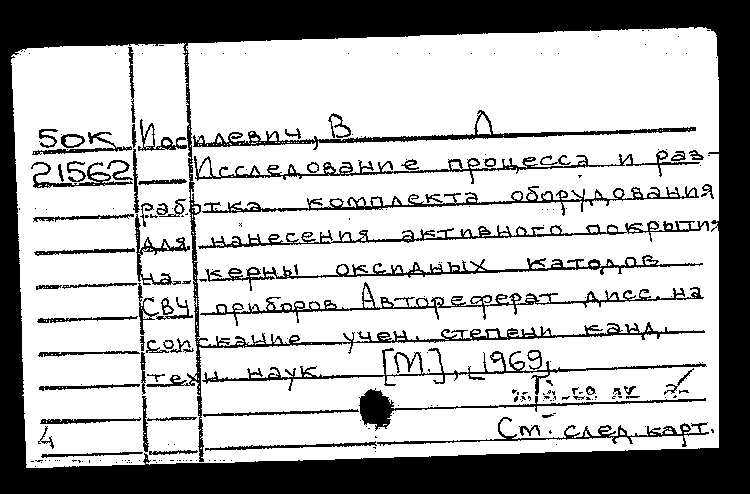 50К Иосилевич, В Л
21562 Исследование процесса и раз-
работка комплекта оборудования
для нанесения активного покрытия
на керны оксидных катодов
СВЧ приборов. Автореферат дисс. на
соискание учен. степени канд.
техн. наук. [М.], 1969.
4 См. след. карт.